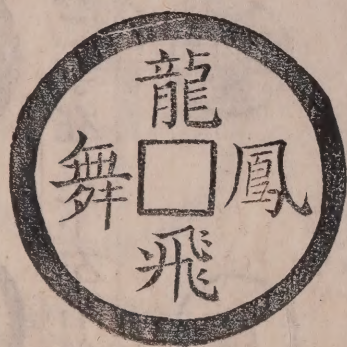 龍
飛
鳳
舞